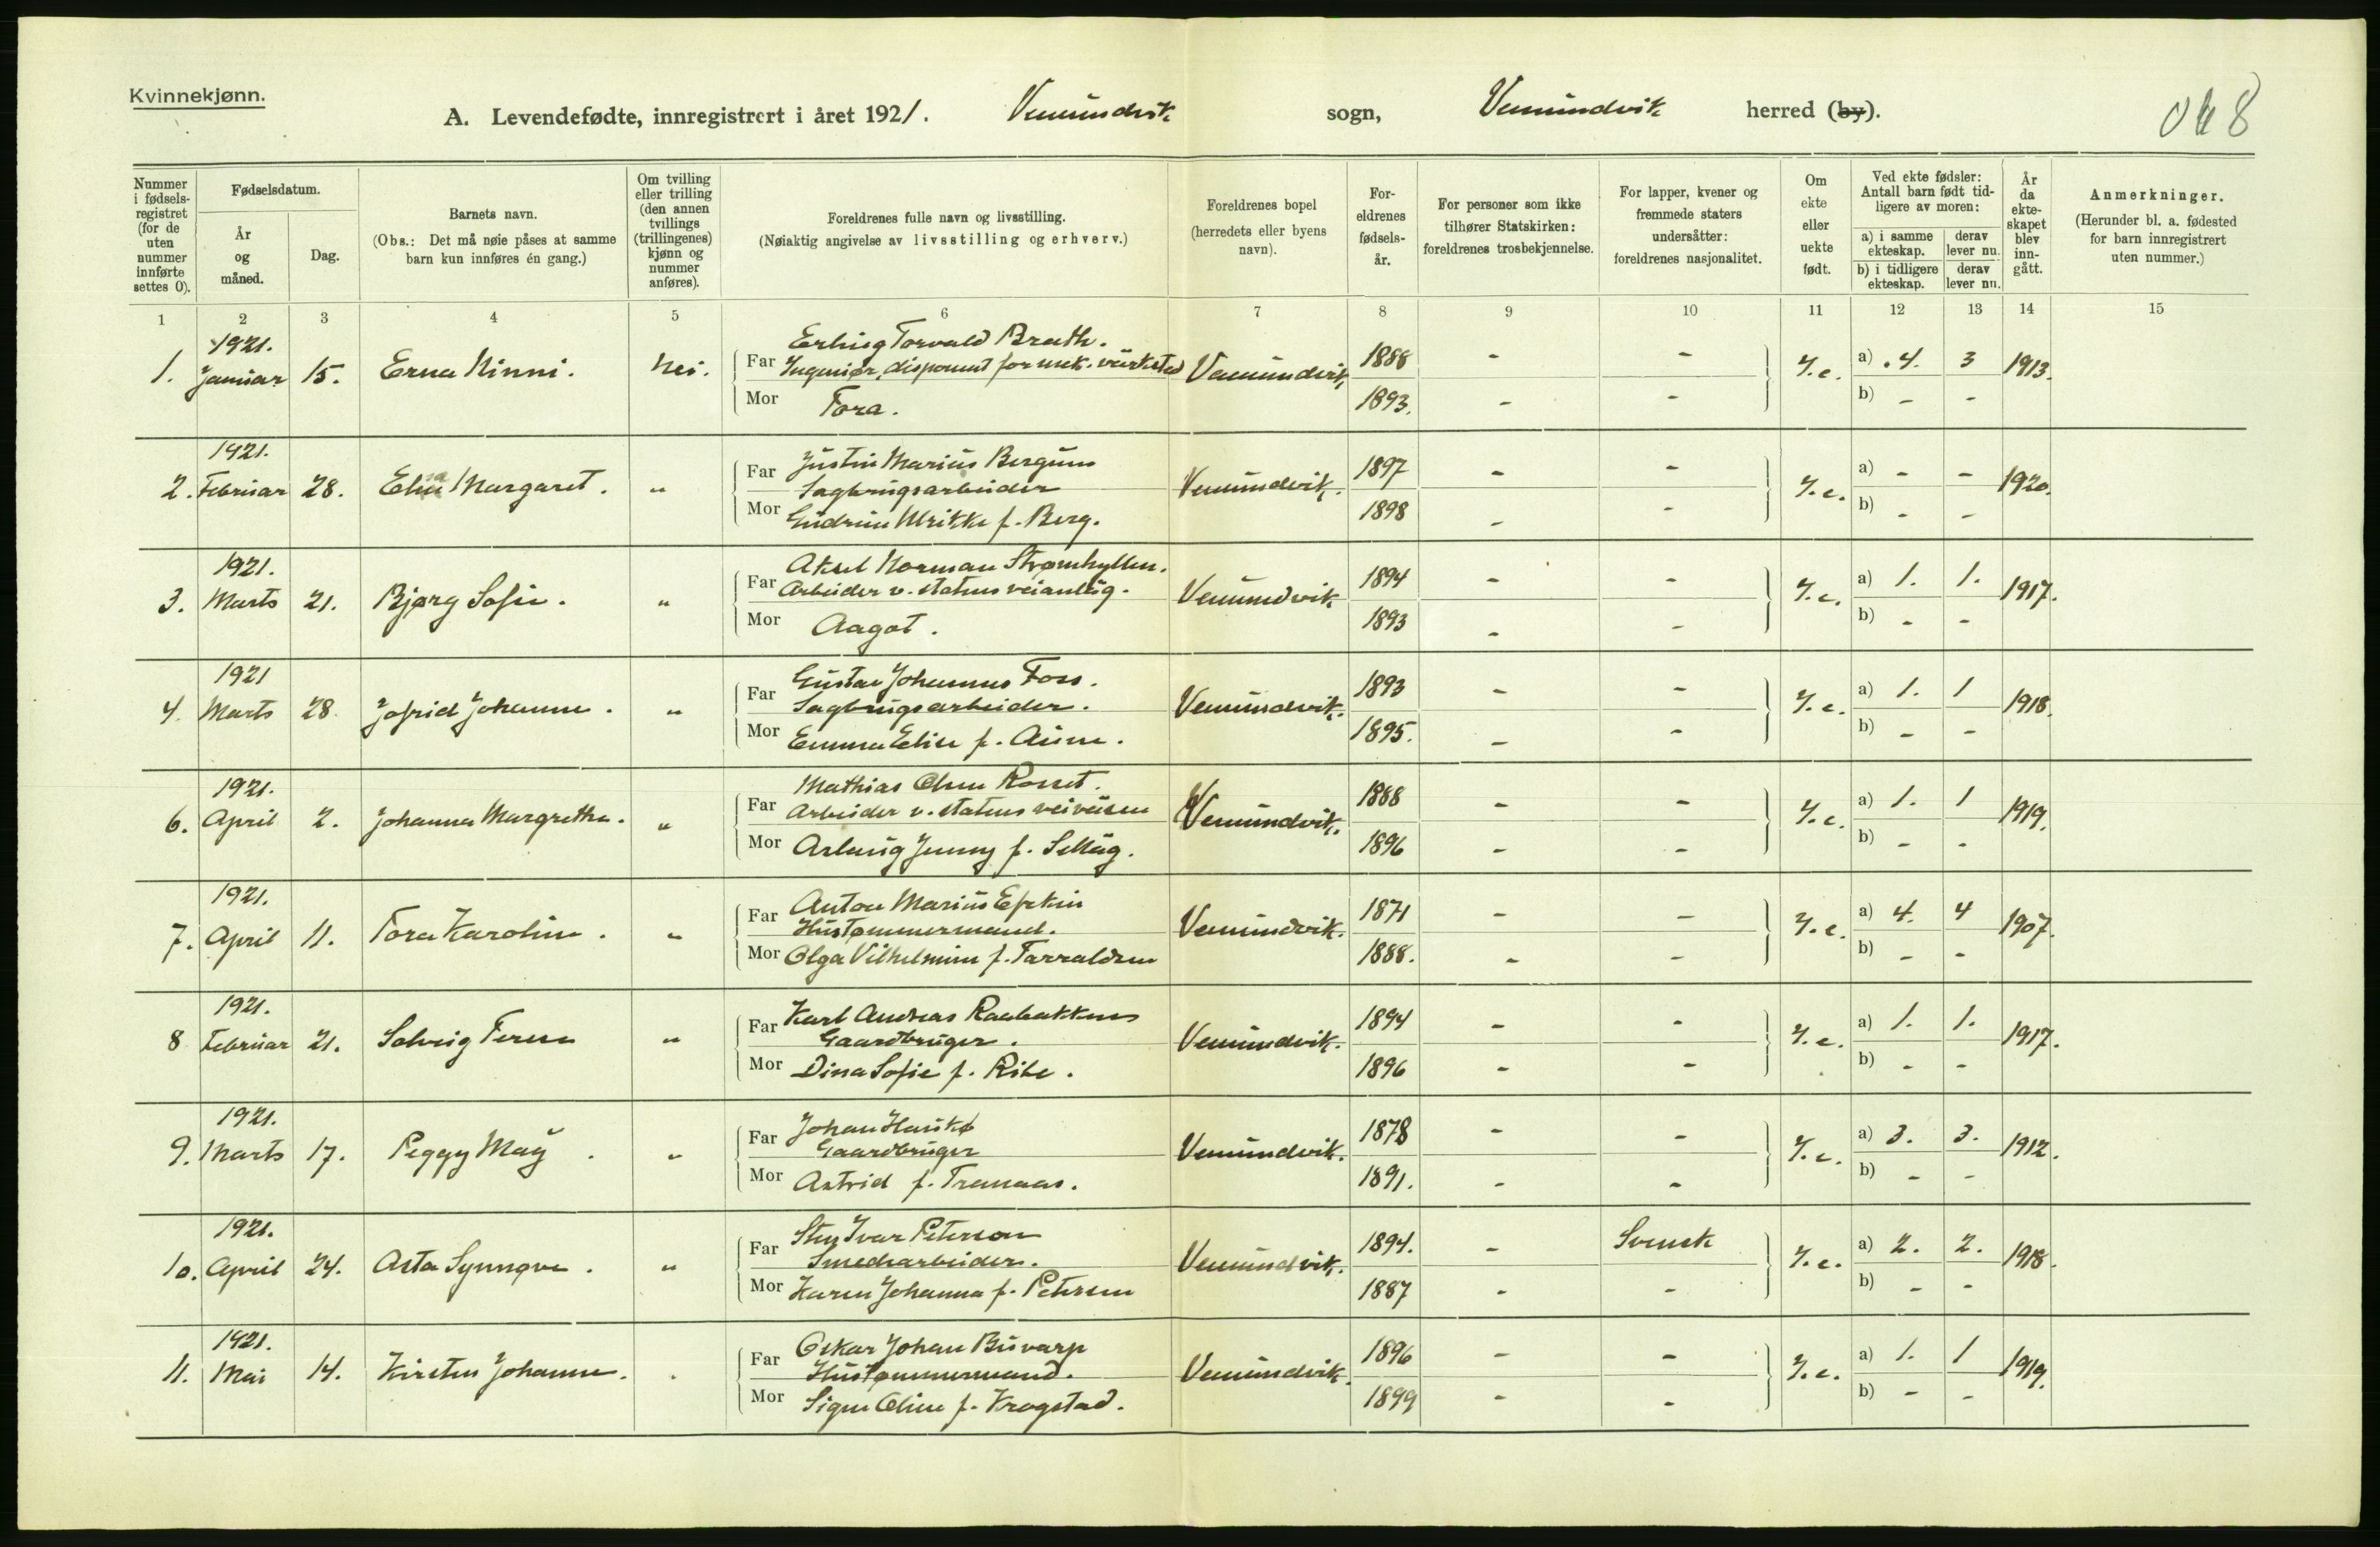 Kvinnekjønn.
A. Levendefødte, innregistrert i året 1921. Vemundvik sogn, Vemundvik herred (by).
Nummer i fødsels-registret (for de uten nummer innførte settes 0).
Fødselsdatum.
År og måned.
Dag.
Barnets navn.
(Obs.: Det må nøie påses at samme barn kun innføres én gang.)
Om tvilling eller trilling (den annen tvillings (trillingenes) kjønn og nummer anføres).
Foreldrenes fulle navn og livsstilling.
(Nøiaktig angivelse av livsstilling og erhverv.)
Foreldrenes bopel (herredets eller byens navn).
For-eldrenes fødsels-år.
For personer som ikke tilhører Statskirken: foreldrenes trosbekjennelse.
For lapper, kvener og fremmede staters undersåtter: foreldrenes nasjonalitet.
Om ekte eller uekte født.
Ved ekte fødsler: Antall barn født tid-ligere av moren:
a) i samme ekteskap.
derav lever nu.
b) i tidligere ekteskap.
derav lever nu.
År da ekte-skapet blev inn-gått.
Anmerkninger.
(Herunder bl. a. fødested for barn innregistrert uten nummer.)
1 2 3 4 5 6 7 8 9 10 11 12 13 14 15
1921.
1. Januar 15. Erna Ninni. Nei.
Far Erling Torvald Brath.
Ingeniør, disponent for mek. verksted Vemundvik 1888 - - a) 4. 3 1913.
Mor Tora. 1893. - - b) - -
1921.
2. Februar 28. Elsa Margaret. "
Far Justin Marius Bergum
Sagbrugsarbeider Vemundvik. 1897 - - a) - - 1920.
Mor Gudrun Ulrikke f. Berg. 1898 - - b) - -
1921.
3. Marts 21. Bjørg Sofie. "
Far Aksel Norman Strømhyllen.
Arbeider v. statens veianlæg. Vemundvik 1894 - - a) 1. 1. 1917.
Mor Aagot. 1893 - - b) - -
1921
4. Marts 28. Jofrid Johanne. "
Far Gustav Johannes Foss.
Sagbrugsarbeider. Vemundvik. 1893 - - a) 1. 1 1918.
Mor Emma Elise f. Aune. 1895. - - b) - -
1921.
6. April 2. Johanna Margrethe. "
Far Mathias Olsen Rosset.
Arbeider v. statens veivæsen Vemundvik. 1888 - - a) 1. 1 1919.
Mor Aslaug Jenny f. Selläg. 1896 - - b) - -
1921.
7. April 11. Tora Karoline. "
Far Anton Marius Epskin
Hustømmermand. Vemundvik. 1871 - - a) 4. 4 1907.
Mor Olga Vilhelmine f. Tarraldsen 1888. - - b) - -
1921.
8 Februar 21. Solveig Terese "
Far Karl Andreas Raabakknes
Gaardbruger. Vemundvik. 1894 - - a) 1. 1. 1917.
Mor Dina Sofie f. Ribe. 1896 - - b) - -
1921.
9. Marts 17. Peggy May. "
Far Johan Hauskø
Gaardbruger Vemundvik. 1878 - - a) 3. 3. 1912.
Mor Astrid f. Tranaas. 1891. - - b) - -
1921.
10. April 24. Asta Synnøve. "
Far Sten Ivar Peterson
Smedearbeider. Vemundvik. 1894. - Svensk a) 2. 2. 1918.
Mor Karen Johanna f. Petersen 1887 - - b) - -
1921.
11. Mai 14. Kirsten Johanne.
Far Oskar Johan Buvarp
Hustømmermand. Vemundvik. 1896 - - a) 1. 1 1919.
Mor Signe Oline f. Krogstad. 1899 - - b) - -